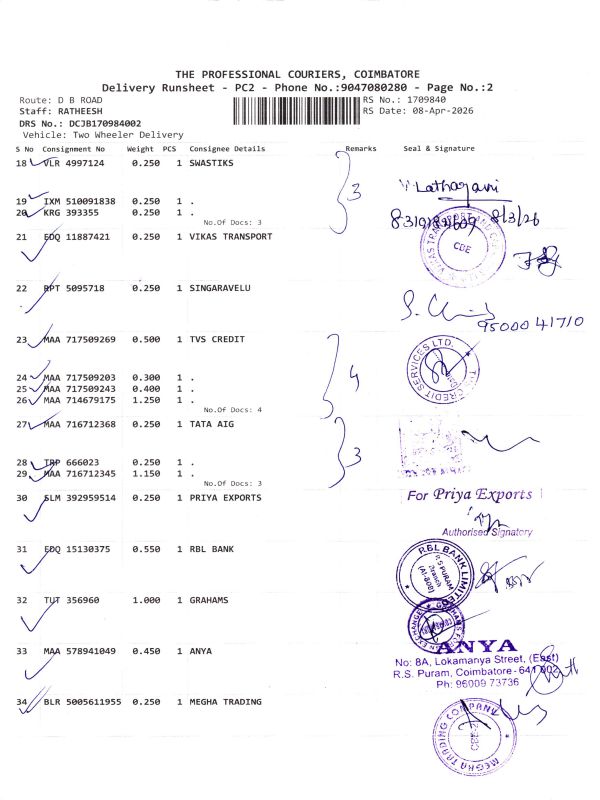 THE PROFESSIONAL COURIERS, COIMBATORE
Delivery Runsheet - PC2 - Phone No.:9047080280 - Page No.:2
Route: D B ROAD RS No.: 1709840
Staff: RATHEESH RS Date: 08-Apr-2026
DRS No.: DCJB170984002
Vehicle: Two Wheeler Delivery
S No Consignment No Weight PCS Consignee Details Remarks Seal & Signature
18 VLR 4997124 0.250 1 SWASTIKS
3
19 IXM 510091838 0.250 1 .
20 KRG 393355 0.250 1 .
No.Of Docs: 3
21 EDQ 11887421 0.250 1 VIKAS TRANSPORT
CBE
22 RPT 5095718 0.250 1 SINGARAVELU
95000 41710
23 MAA 717509269 0.500 1 TVS CREDIT
24 MAA 717509203 0.300 1 .
4
25 MAA 717509243 0.400 1 .
26 MAA 714679175 1.250 1 .
No.Of Docs: 4
27 MAA 716712368 0.250 1 TATA AIG
3
28 TRP 666023 0.250 1 .
29 MAA 716712345 1.150 1 .
No.Of Docs: 3
30 SLM 392959514 0.250 1 PRIYA EXPORTS
For Priya Exports
Authorised Signatory
31 EDQ 15130375 0.550 1 RBL BANK
RBL BANK LIMITED
R S PURAM
Branch
32 TUT 356960 1.000 1 GRAHAMS
33 MAA 578941049 0.450 1 ANYA
ANYA
No: 8A, Lokamanya Street, (East)
R.S. Puram, Coimbatore - 641 002
Ph: 96009 73736
34 BLR 5005611955 0.250 1 MEGHA TRADING
MEGHA TRADING COMPANY